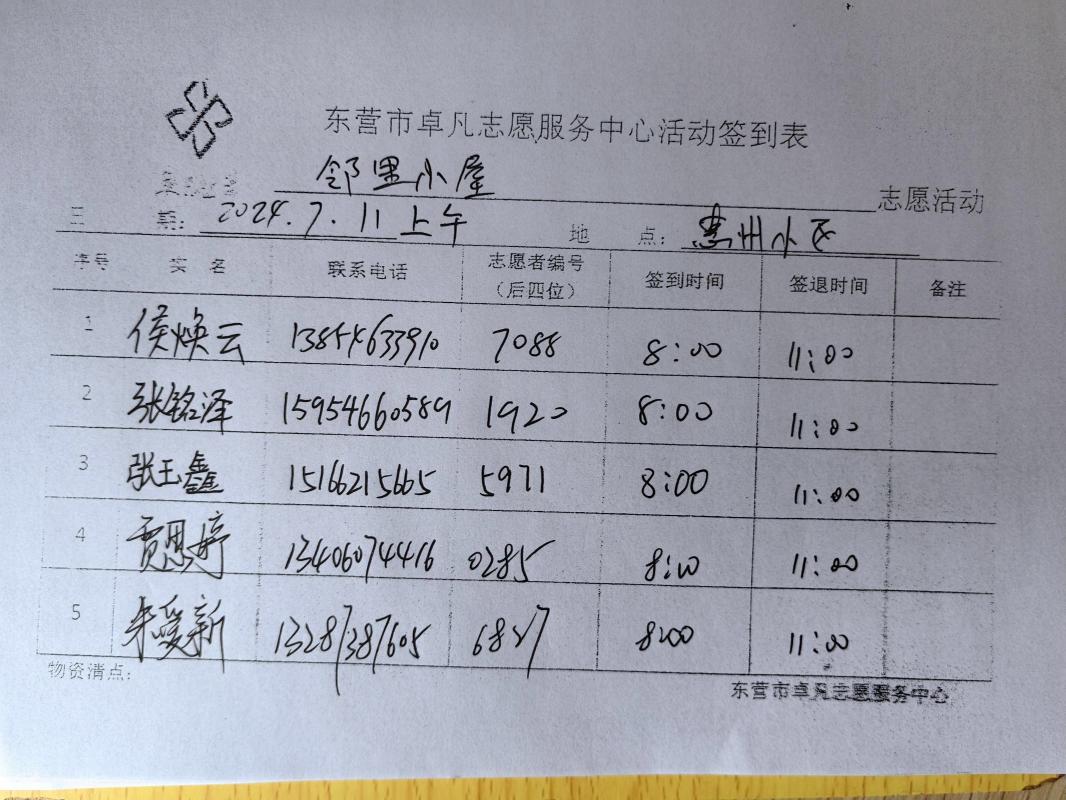 东营市卓凡志愿服务中心活动签到表
邻里小屋 志愿活动
期: 2024.7.11上午 地 点: 惠州小区
序号 姓名 联系电话 志愿者编号（后四位） 签到时间 签退时间 备注
1 侯焕云 13854633910 7088 8:00 11:00
2 张铭泽 15954660589 1920 8:00 11:00
3 张玉鑫 15166215665 5971 8:00 11:00
4 贾思婷 13406074416 0285 8:00 11:00
5 朱爱新 13287387605 6827 8:00 11:00
物资清点:
东营市卓凡志愿服务中心